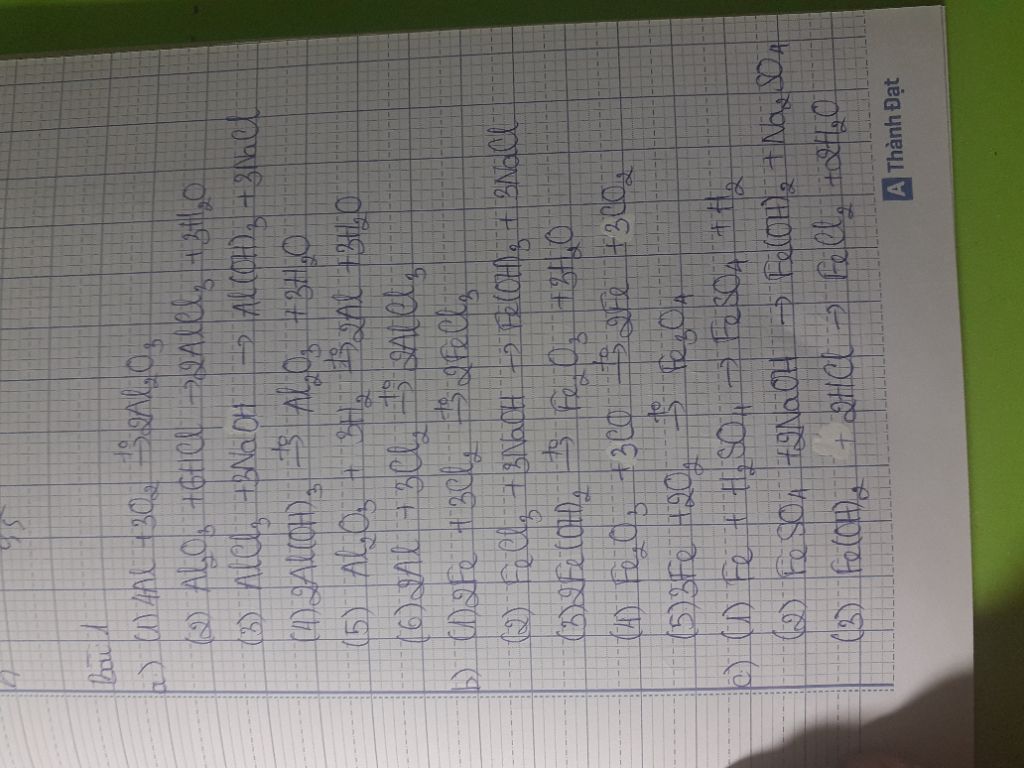 Bài 1
a) (1) 4Al + 3O₂ –t°→ 2Al₂O₃
(2) Al₂O₃ + 6HCl → 2AlCl₃ + 3H₂O
(3) AlCl₃ + 3NaOH → Al(OH)₃ + 3NaCl
(4) 2Al(OH)₃ –t°→ Al₂O₃ + 3H₂O
(5) Al₂O₃ + 3H₂ –t°→ 2Al + 3H₂O
(6) 2Al + 3Cl₂ –t°→ 2AlCl₃
b) (1) 2Fe + 3Cl₂ –t°→ 2FeCl₃
(2) FeCl₃ + 3NaOH → Fe(OH)₃ + 3NaCl
(3) 2Fe(OH)₂ –t°→ Fe₂O₃ + 3H₂O
(4) Fe₂O₃ + 3CO –t°→ 2Fe + 3CO₂
(5) 3Fe + 2O₂ –t°→ Fe₃O₄
c) (1) Fe + H₂SO₄ → FeSO₄ + H₂
(2) FeSO₄ + 2NaOH → Fe(OH)₂ + Na₂SO₄
(3) Fe(OH)₂ + 2HCl → FeCl₂ + 2H₂O
A Thành Đạt